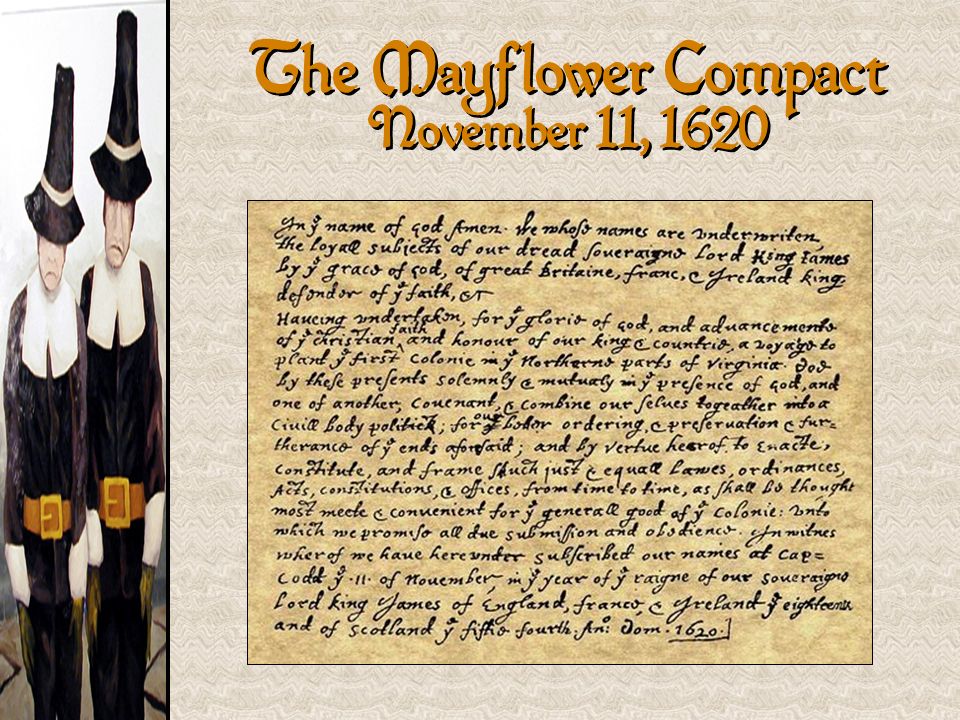 The Mayflower Compact
November 11, 1620
In yͤ name of God Amen. We whose names are underwriten,
the loyall subjects of our dread soveraigne Lord King James
by yͤ grace of God, of great Britaine, franc, & Ireland king,
defender of yͤ faith, &c
Haveing undertaken, for yͤ glorie of God, and advancemente
of yͤ christian faith and honour of our king & countrie, a voyage to
plant yͤ first colonie in yͤ Northerne parts of Virginia. Doe
by these presents solemnly & mutualy in yͤ presence of God, and
one of another, covenant, & combine our selves togeather into a
Civill body politick; for our better ordering, & preservation & fur=
therance of yͤ ends aforesaid; and by vertue hearof to Enacte,
constitute, and frame shuch just & equall Lawes, ordinances,
Acts, constitutions, & offices, from time to time, as shall be thought
most meete & convenient for yͤ generall good of yͤ Colonie: Unto
which we promise all due submission and obedience. In witnes
wherof we have hereunder subscribed our names at Cap=
Codd yͤ .11. of November, in yͤ year of yͤ raigne of our soveraigne
Lord king James of England, france, & Ireland yͤ eighteenth
and of Scotland yͤ fiftie fourth. Anͦ: Dom. 1620.]